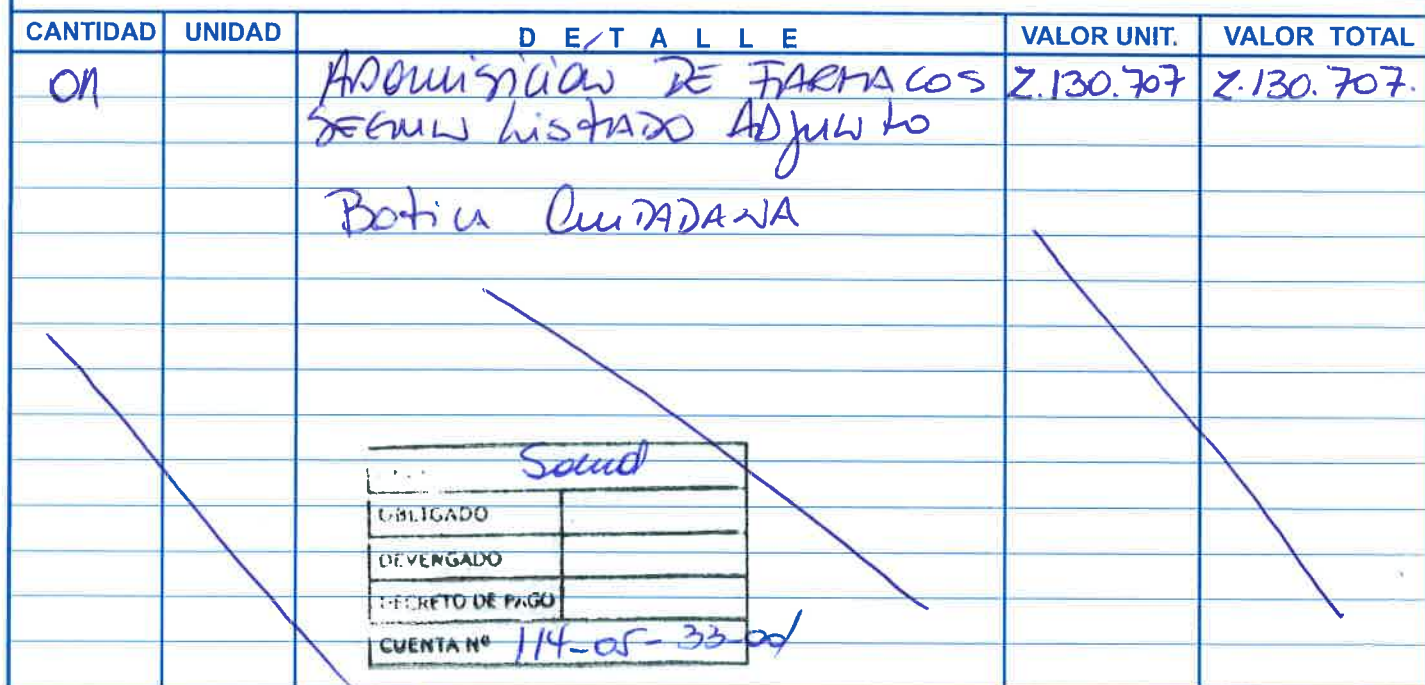 CANTIDAD UNIDAD DETALLE VALOR UNIT. VALOR TOTAL
01 ADQUISICION DE FARMACOS 2.130.707 2.130.707.
SEGUN LISTADO ADJUNTO
Botica CIUDADANA
Salud
OBLIGADO
DEVENGADO
DECRETO DE PAGO
CUENTA Nº 114-05-33-00